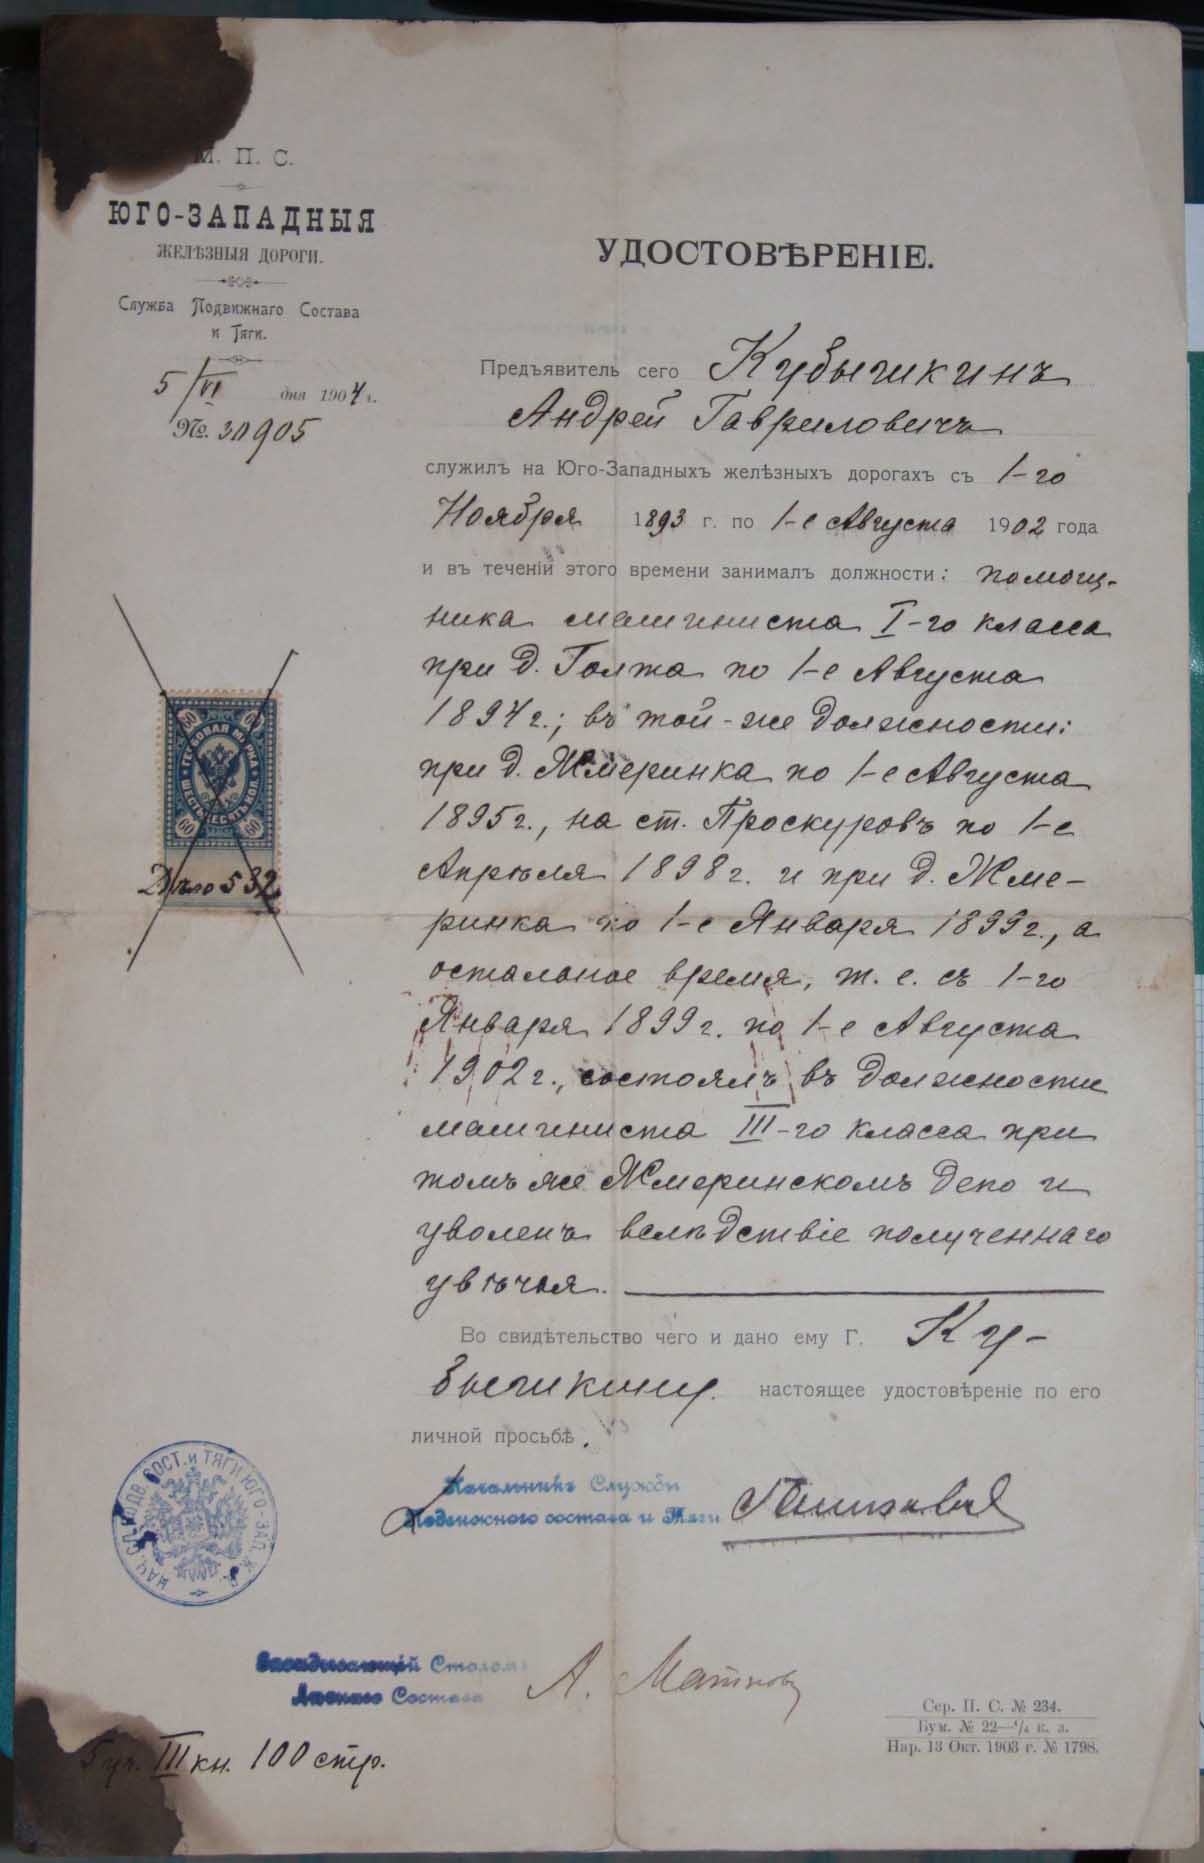 М. П. С.
ЮГО-ЗАПАДНЫЯ
ЖЕЛѢЗНЫЯ ДОРОГИ.
Служба Подвижнаго Состава
и Тяги.
5/VI дня 1904 г.
№. 30905
УДОСТОВѢРЕНІЕ.
Предъявитель сего Кубышкинъ
Андрей Гавриловичъ
служилъ на Юго-Западныхъ желѣзныхъ дорогахъ съ 1-го
Ноября 1893 г. по 1-е Августа 1902 года
и въ теченій этого времени занималъ должности: помощ-
ника машиниста I-го класса
при д. Голта по 1-е Августа
1894 г.; въ той-же должности:
при д. Жмеринка по 1-е Августа
1895 г., на ст. Проскуровъ по 1-е
Апрѣля 1898 г. и при д. Жме-
ринка по 1-е Января 1899 г., а
остальное время, т. е. съ 1-го
Января 1899 г. по 1-е Августа
1902 г., состоялъ въ должности
машиниста III-го класса при
томъ же Жмеринскомъ депо и
уволенъ вслѣдствіе полученнаго
увѣчья.
Во свидѣтельство чего и дано ему Г. Ку-
бышкину настоящее удостовѣреніе по его
личной просьбѣ.
Начальникъ Службы
Подвижного состава и Тяги
Завѣдывающій Столомъ
Личнаго Состава
А.
60 60
ГЕРБОВАЯ МАРКА
ШЕСТЬДЕСЯТЪ КОП.
60 60
Дѣло 532
НАЧ. СЛ. ПОДВ. СОСТ. и ТЯГИ ЮГО-ЗАП. Ж. Д.
5 уч. III кн. 100 стр.
Сер. П. С. № 234.
Бум. № 22—¹/₄ к. з.
Нар. 13 Окт. 1903 г. № 1798.